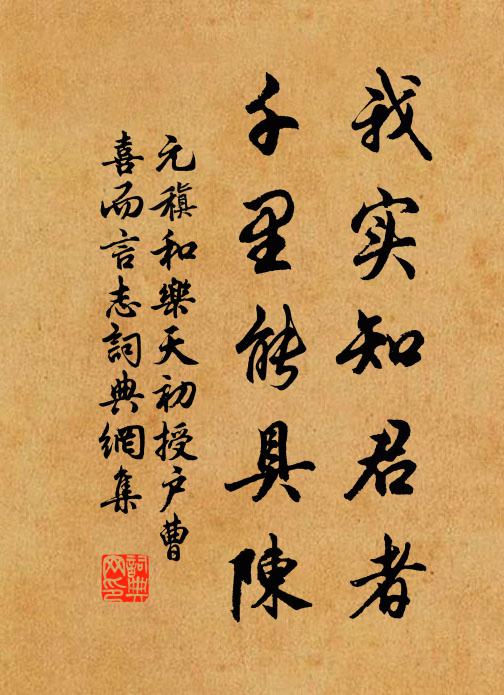 我实知君者
千里能具陳
元稹和樂天初授户曹
喜而言志詞典網集
詞典网印